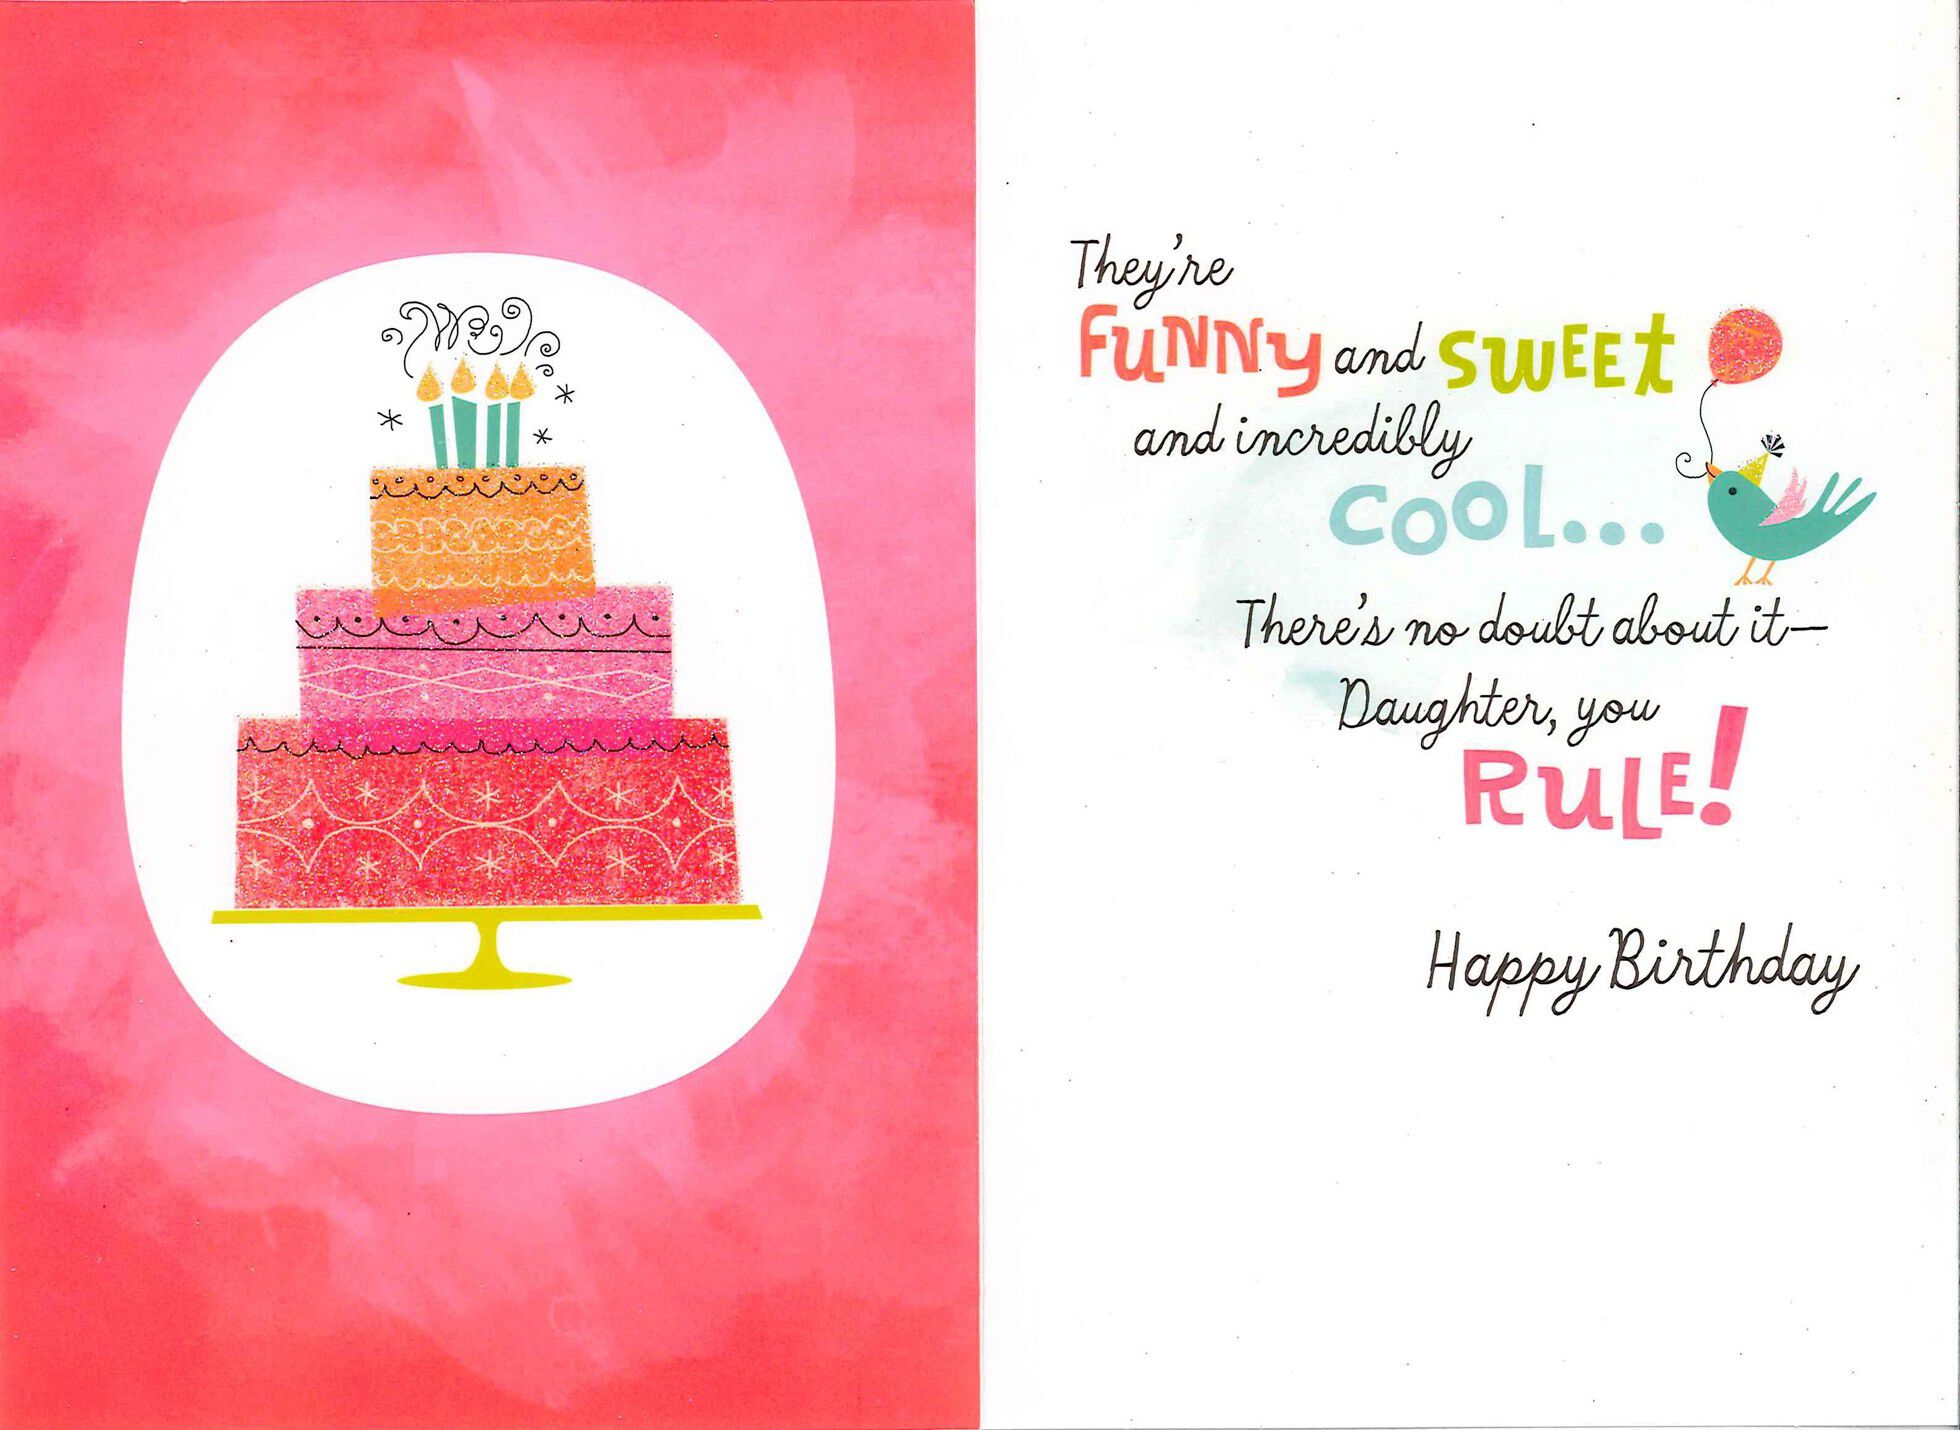 They're
FUNNY and SWEET
and incredibly
COOL...
There's no doubt about it—
Daughter, you
RULE!
Happy Birthday